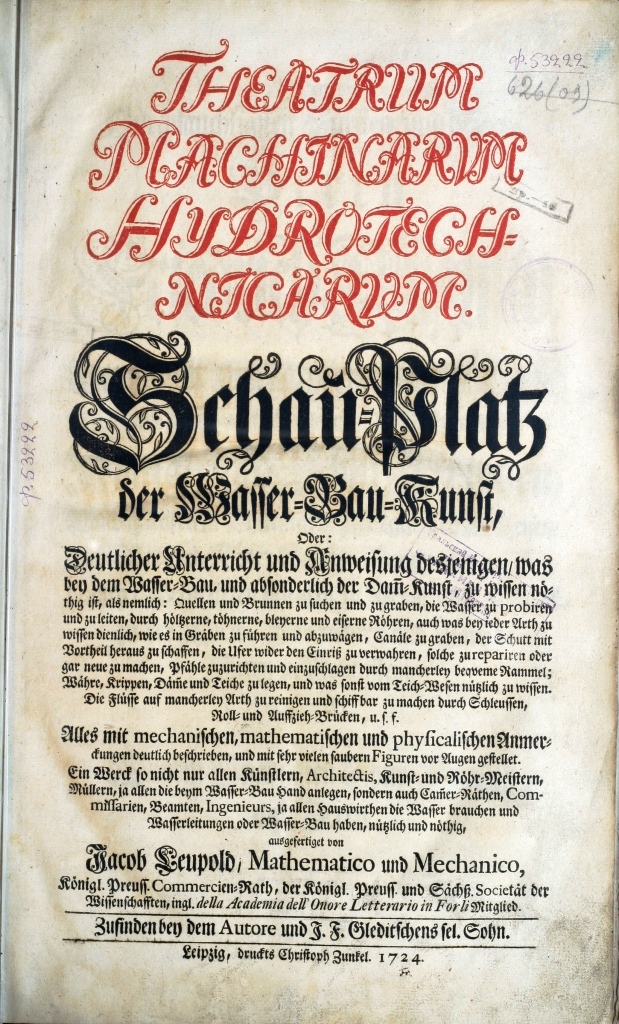 ф.53222
626(09)
THEATRUM
MACHINARUM
HYDROTECH=
NICARUM.
Schau=Platz
der Wasser=Bau=Kunst,
Oder:
Deutlicher Unterricht und Anweisung desjenigen, was
bey dem Wasser=Bau, und absonderlich der Dam̃=Kunst, zu wissen nö=
thig ist, als nemlich: Quellen und Brunnen zu suchen und zu graben, die Wasser zu probiren
und zu leiten, durch höltzerne, töhnerne, bleyerne und eiserne Röhren, auch was bey jeder Arth zu
wissen dienlich, wie es in Gräben zu führen und abzuwägen, Canäle zu graben, der Schutt mit
Vortheil heraus zu schaffen, die Ufer wider den Einriß zu verwahren, solche zu repariren oder
gar neue zu machen, Pfähle zuzurichten und einzuschlagen durch mancherley beqveme Rammel;
Währe, Krippen, Däm̃e und Teiche zu legen, und was sonst vom Teich=Wesen nützlich zu wissen.
Die Flüsse auf mancherley Arth zu reinigen und schiffbar zu machen durch Schleussen,
Roll= und Auffzieh=Brücken, u. s. f.
Alles mit mechanischen, mathematischen und physicalischen Anmer=
ckungen deutlich beschrieben, und mit sehr vielen saubern Figuren vor Augen gestellet.
Ein Werck so nicht nur allen Künstlern, Architectis, Kunst= und Röhr=Meistern,
Müllern, ja allen die beym Wasser=Bau Hand anlegen, sondern auch Cam̃er=Räthen, Com-
missarien, Beamten, Ingenieurs, ja allen Hauswirthen die Wasser brauchen und
Wasserleitungen oder Wasser=Bau haben, nützlich und nöthig,
ausgefertiget von
Jacob Leupold, Mathematico und Mechanico,
Königl. Preuss. Commercien=Rath, der Königl. Preuss. und Sächß. Societät der
Wissenschafften, ingl. della Academia dell' Onore Letterario in Forli Mitglied.
Zufinden bey dem Autore und J. F. Gleditschens sel. Sohn.
Leipzig, druckts Christoph Zunkel. 1724.
ф.53222